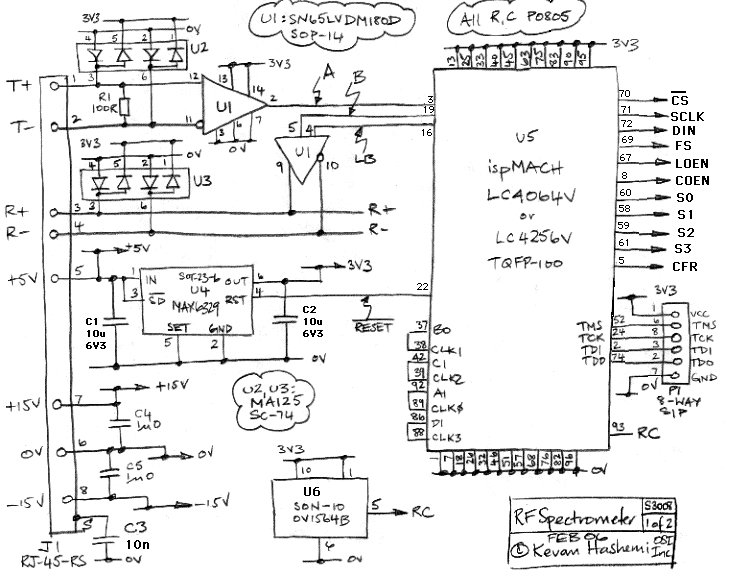 U1: SN65LVDM180D
SOP-14
All R, C P0805
3V3
0V
4 5 2 1
U2
3 6
T+ 1
R1
100R
T- 2
3V3
13 14
12
U1
2
11
3 4 7
0V
A
B
LB
5 4
U1
9 10
3V3
0V
4 5 2 1
U3
3 6
R+ 3
R+
R- 4
R-
+5V
+5V 5
1
3
SOT-23-6
IN OUT
U4
SD RST
MAX6329
SET GND
5 2
6
4
3V3
C1
10u
6V3
C2
10u
6V3
0V
RESET
+15V
+15V 7
C4
1u0
0V 6
0V
C5
1u0
-15V 8
-15V
S
C3
10n
J1
RJ-45-RS
U2, U3:
MA125
SC-74
3V3
10 1
U6
SON-10
5
RC
6
0V
3V3
13 25 33 40 45 63 75 83 90 95
3
19
16
22
U5
ispMACH
LC4064V
or
LC4256V
TQFP-100
70 CS
71 SCLK
72 DIN
69 FS
67 LOEN
8 COEN
60 S0
58 S1
59 S2
61 S3
5 CFR
37 B0
38 CLK1
42 C1
39 CLK2
92 A1
89 CLK0
86 D1
88 CLK3
TMS 52
TCK 24
TDI 2
TDO 74
3V3
1 VCC
6 TMS
8 TCK
3 TDI
2 TDO
7 GND
0V
P1
8-WAY
SIP
93
RC
1 7 18 26 32 46 51 57 68 76 82 96
0V
RF Spectrometer
S3008
1 of 2
FEB 06
© Kevan Hashemi
OSI
Inc